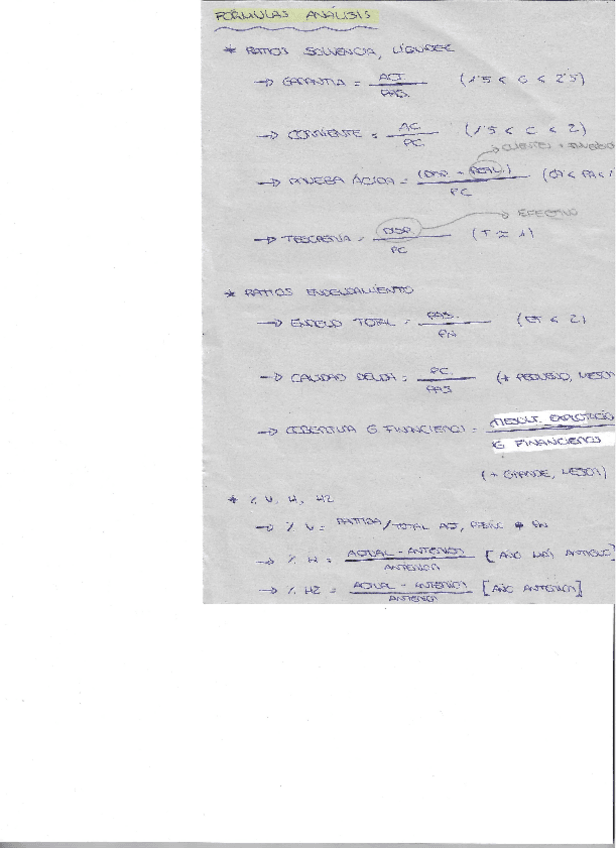 FÓRMULAS ANÁLISIS
* RATIOS SOLVENCIA, LIQUIDEZ
→ GARANTIA = ACT. / PAS. (1'5 < G < 2'5)
→ CORRIENTE = AC / PC (1'5 < C < 2)
→ CLIENTES +
→ PRUEBA ÁCIDA = (DISP + REAL.) / PC
→ EFECTIVO
→ TESORERIA = DISP / PC (T ≈ 1)
* RATIOS ENDEUDAMIENTO
→ ENDEUD TOTAL = PAS. / PN (ET < 2)
→ CALIDAD DEUDA = PC / PAS (+ PEQUEÑO, MEJOR
→ COBERTURA G. FINANCIEROS = RESULT. EXPLOTACIÓ / G. FINANCIEROS
(+ GRANDE, MEJOR)
* % V, H, HZ
→ % V = PARTIDA/TOTAL
→ % H = ACTUAL - ANTERIOR / ANTERIOR [AÑO MÁS ANTIGUO]
→ % HZ = ACTUAL - ANTERIOR / ANTERIOR [AÑO ANTERIOR]